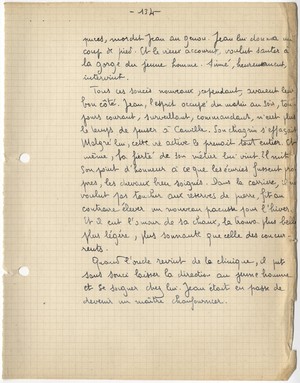 - 134 -
puces, mordit Jean au genou. Jean lui donna un
coup de pied. Et le vieux accourut, voulut sauter à
la gorge du jeune homme. Aimé, heureusement,
intervint.
Tous ces soucis nouveaux, cependant, avaient leur
bon côté. Jean, l'esprit occupé du matin au soir, tou-
jours courant, surveillant, commandant, n'eut plus
le temps de penser à Camille. Son chagrin s'effaçait.
Malgré lui, cette vie active le prenait tout entier. Et
même, la fierté de son métier lui vint. Il mit
son point d'honneur à ce que les écuries fussent pro-
pres, les chevaux bien soignés. Dans la carrière, il
voulut pas toucher aux réserves de pierre, fit au
contraire élever un nouveau pour l'hiver.
Et il eut l'amour de sa chaux, la trouva plus belle,
plus légère, plus sonnante que celle des concur-
rents.
Quand l'oncle revint de la clinique, il put
sans souci laisser la direction au jeune homme
et se soigner chez lui. Jean était en passe de
devenir un maître chaufournier.